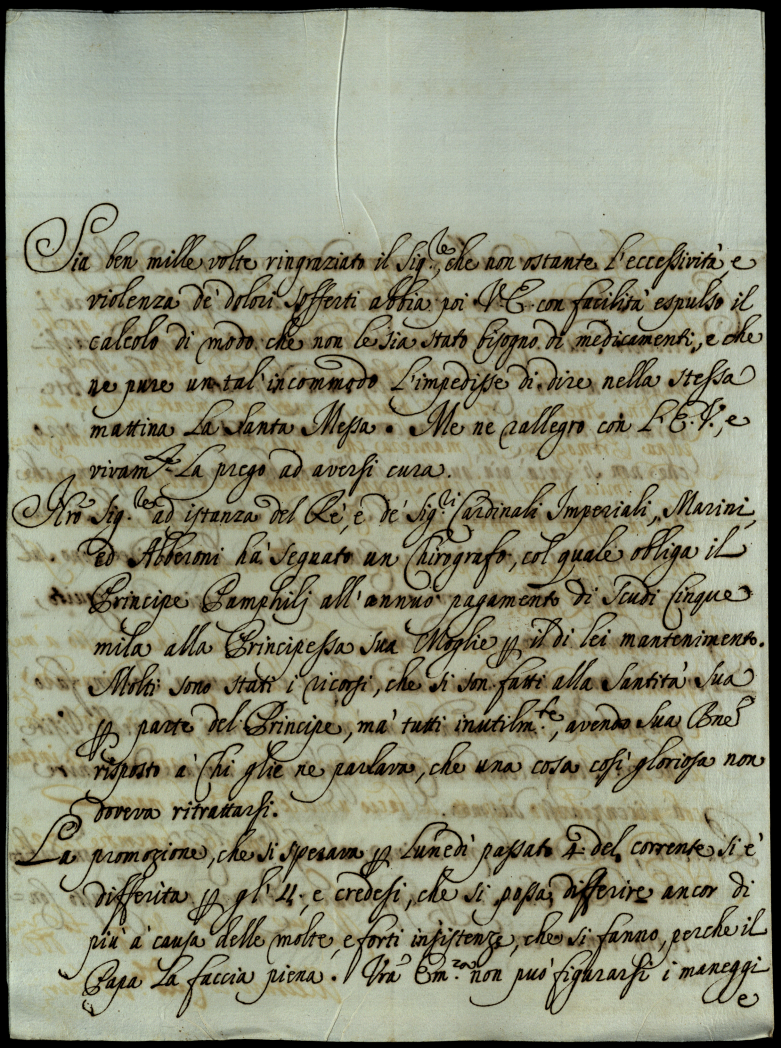 Sia ben mille volte ringraziato il Sig.re, che non ostante l'eccessività, e
violenza de' dolori sofferti abbia poi V.E. con facilità espulso il
calcolo di modo che non le sia stato bisogno di medicamenti, e che
ne pure un tal' incommodo l'impedisse di dire nella stessa
mattina la Santa Messa. Me ne rallegro con l'E.V., e
vivam.te la prego ad aversi cura.
Nro Sig.re ad istanza del Rè, e de' Sig.ri Cardinali Imperiali, Marini,
ed Alberoni hà segnato un Chirografo, col quale obliga il
Principe Pamphilj all' annuo pagamento di Scudi Cinque
mila alla Principessa sua Moglie p il di lei mantenimento.
Molti sono stati i ricorsi, che si son fatti alla Santità Sua
p parte del Principe, mà tutti inutilm.te, avendo Sua Bne
risposto à Chi glie ne parlava, che una cosa così gloriosa non
doveva ritrattarsi.
La promozione, che si sperava p Lunedì passato 4 del corrente si è
differita p gl' 11, e credesi, che si possa differire ancor di
più à causa delle molte, e forti insistenze, che si fanno, perche il
Papa la faccia piena. Vrà Em.za non può figurarsi i maneggi
e